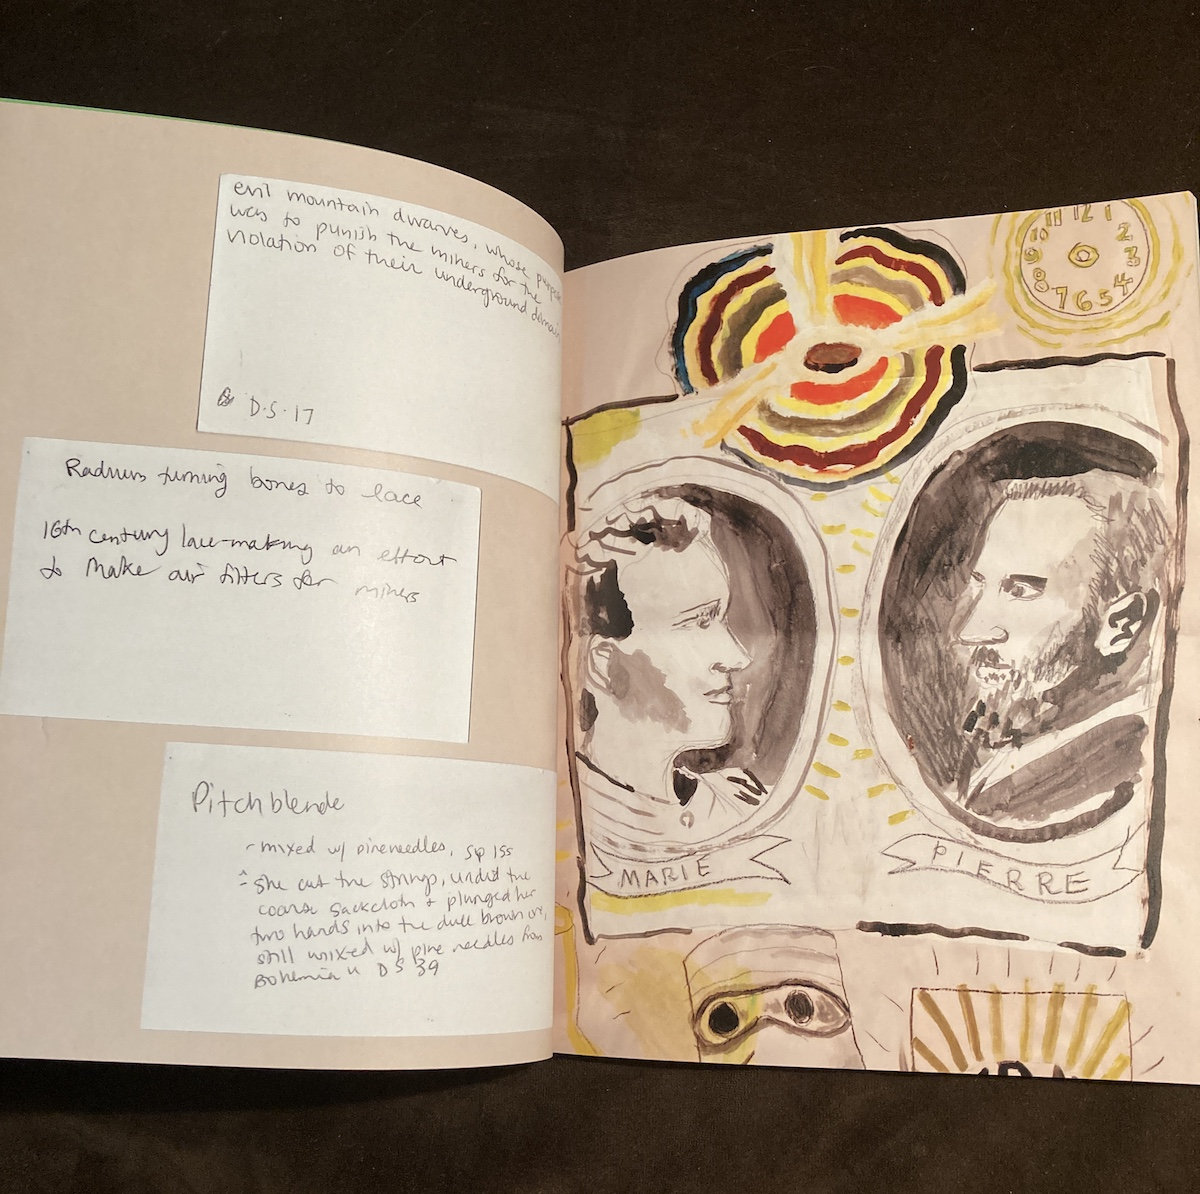 evil mountain dwarves, whose purpose
was to punish the miners for the
violation of their underground domain
D.S. 17
Radium turning bones to lace
16th century lace-making an effort
to make air filters for miners
Pitchblende
- mixed w/ pineneedles, sp 155
"she cut the strings, undid the
coarse sackcloth + plunged her
two hands into the dull brown ore,
still mixed w/ pine needles from
Bohemia" DS 39
11 12 1
10 2
9 3
8 4
7 6 5
MARIE
PIERRE